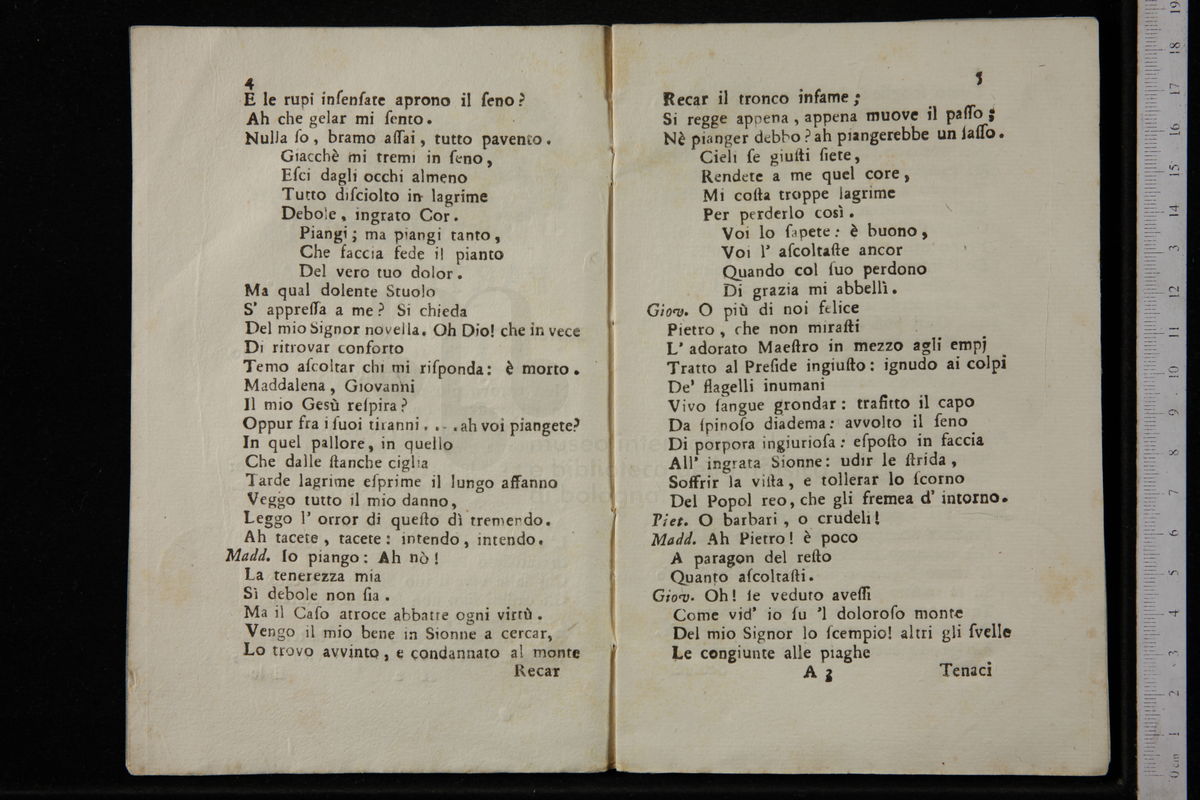 4
E le rupi inſenſate aprono il ſeno?
Ah che gelar mi ſento.
Nulla ſo, bramo aſſai, tutto pavento.
Giacchè mi tremi in ſeno,
Eſci dagli occhi almeno
Tutto diſciolto in lagrime
Debole, ingrato Cor.
Piangi; ma piangi tanto,
Che faccia fede il pianto
Del vero tuo dolor.
Ma qual dolente Stuolo
S' appreſſa a me? Si chieda
Del mio Signor novella. Oh Dio! che in vece
Di ritrovar conforto
Temo aſcoltar chi mi riſponda: è morto.
Maddalena, Giovanni
Il mio Gesù reſpira?
Oppur fra i ſuoi tiranni....ah voi piangete?
In quel pallore, in quello
Che dalle ſtanche ciglia
Tarde lagrime eſprime il lungo affanno
Veggo tutto il mio danno,
Leggo l' orror di queſto dì tremendo.
Ah tacete, tacete: intendo, intendo.
Madd. Io piango: Ah nò!
La tenerezza mia
Sì debole non ſia.
Ma il Caſo atroce abbatte ogni virtù.
Vengo il mio bene in Sionne a cercar,
Lo trovo avvinto, e condannato al monte
Recar
5
Recar il tronco infame;
Si regge appena, appena muove il paſſo;
Nè pianger debbo? ah piangerebbe un ſaſſo.
Cieli ſe giuſti ſiete,
Rendete a me quel core,
Mi coſta troppe lagrime
Per perderlo così.
Voi lo ſapete: è buono,
Voi l' aſcoltaſte ancor
Quando col ſuo perdono
Di grazia mi abbellì.
Giov. O più di noi felice
Pietro, che non miraſti
L' adorato Maeſtro in mezzo agli empj
Tratto al Preſide ingiuſto: ignudo ai colpi
De' flagelli inumani
Vivo ſangue grondar: trafitto il capo
Da ſpinoſo diadema: avvolto il ſeno
Di porpora ingiurioſa: eſpoſto in faccia
All' ingrata Sionne: udir le ſtrida,
Soffrir la viſta, e tollerar lo ſcorno
Del Popol reo, che gli fremea d' intorno.
Piet. O barbari, o crudeli!
Madd. Ah Pietro! è poco
A paragon del reſto
Quanto aſcoltaſti.
Giov. Oh! ſe veduto aveſſi
Come vid' io ſu 'l doloroſo monte
Del mio Signor lo ſcempio! altri gli ſvelle
Le congiunte alle piaghe
A 3 Tenaci